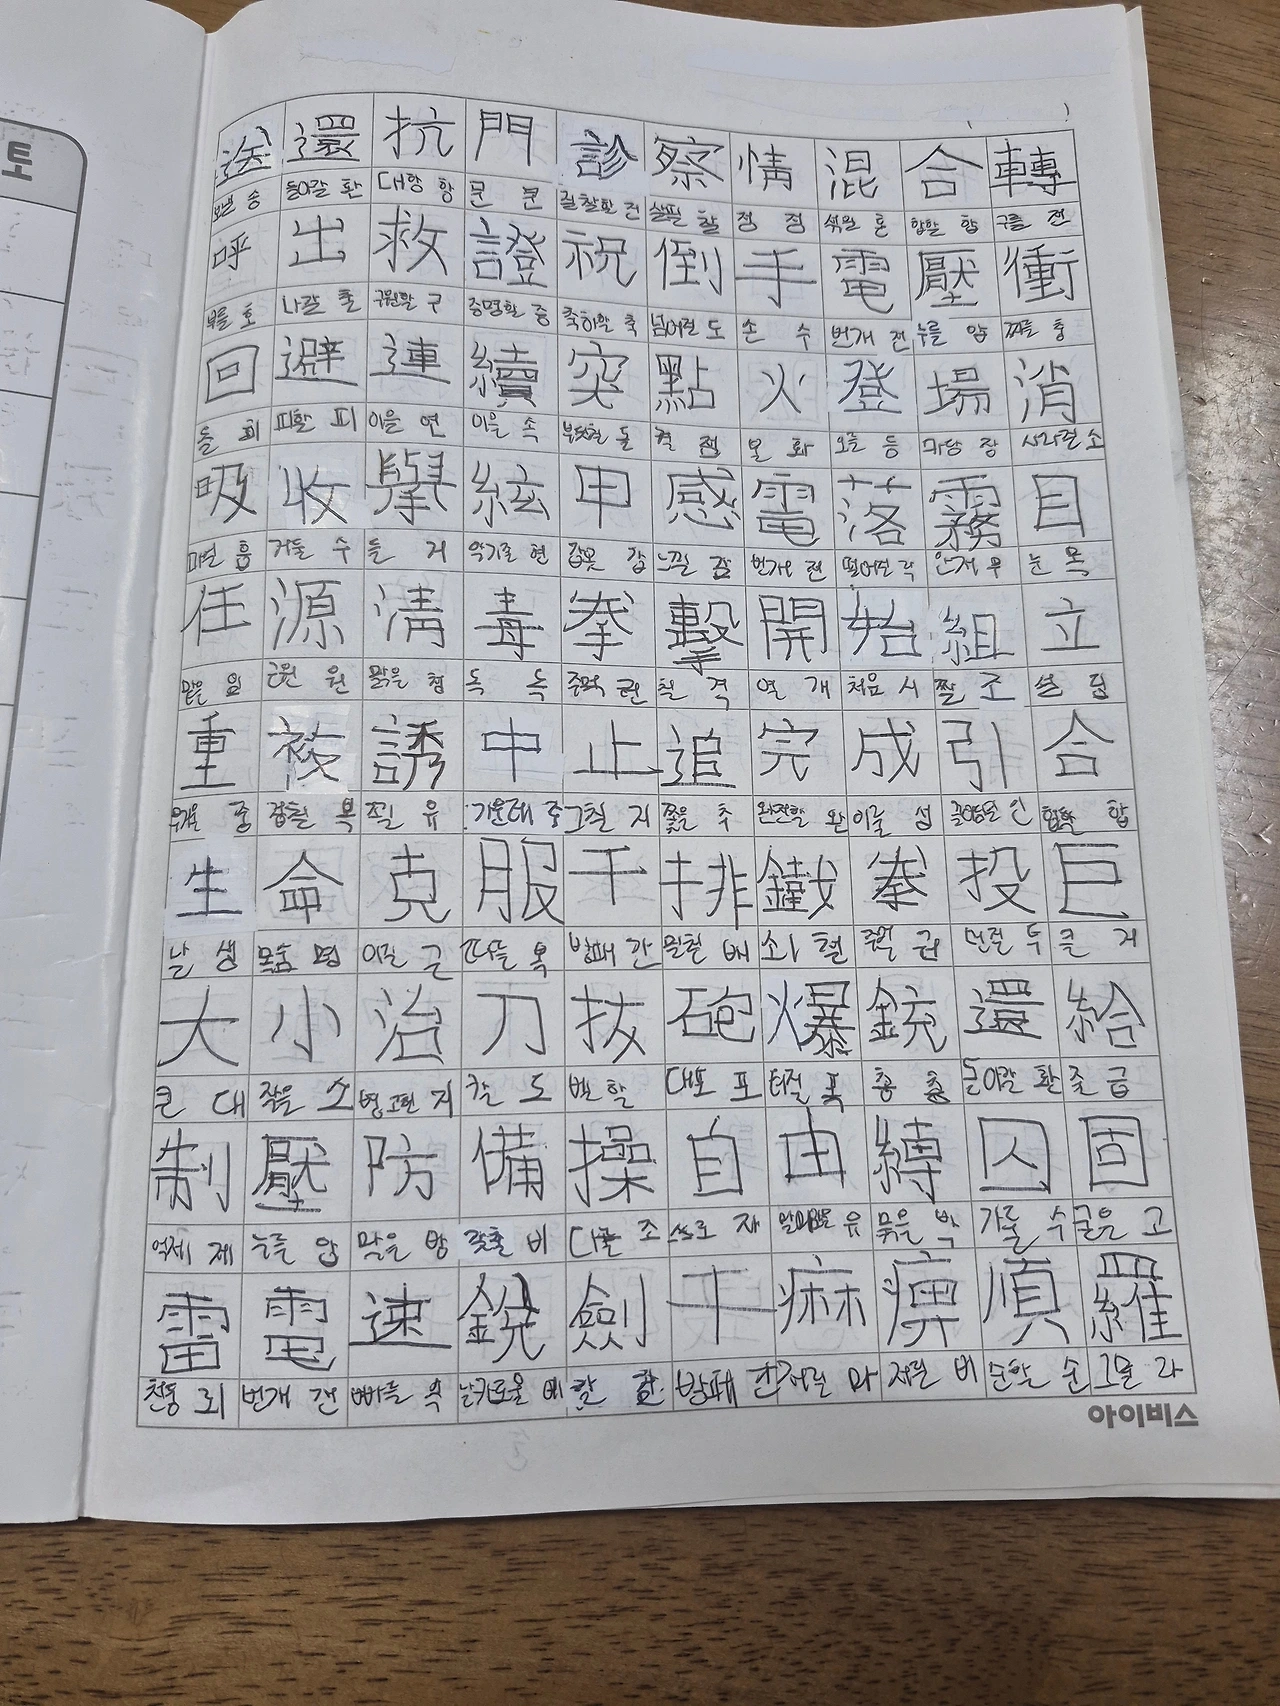 토
送 還 抗 門 診 察 情 混 合 轉
보낼 송 돌아갈 환 대항 항 문 문 진찰할 진 살필 찰 정 정 섞을 혼 합할 합 구를 전
呼 出 救 證 祝 倒 手 電 壓 衝
부를 호 나갈 출 구원할 구 증명할 증 축하할 축 넘어질 도 손 수 번개 전 누를 압 찌를 충
回 避 連 續 突 點 火 登 場 消
돌 회 피할 피 이을 연 이을 속 부딪힐 돌 점 점 불 화 오를 등 마당 장 사라질 소
吸 收 擧 絃 甲 感 電 落 霧 目
마실 흡 거둘 수 들 거 악기줄 현 갑옷 갑 느낄 감 번개 전 떨어질 락 안개 무 눈 목
任 源 清 毒 拳 擊 開 始 組 立
맡을 임 근원 원 맑을 청 독 독 주먹 권 칠 격 열 개 처음 시 짤 조 설 립
重 複 誘 中 止 追 完 成 引 合
무거울 중 겹칠 복 꾀일 유 가운데 중 그칠 지 쫓을 추 완전할 완 이룰 성 끌어당길 인 합할 합
生 命 克 服 干 排 鐵 拳 投 巨
날 생 목숨 명 이길 극 따를 복 방패 간 물리칠 배 쇠 철 주먹 권 던질 투 클 거
大 小 治 刀 拔 砲 爆 銃 還 給
큰 대 작을 소 병고칠 치 칼 도 뺄 발 대포 포 터질 폭 총 총 돌아갈 환 줄 급
制 壓 防 備 操 自 由 縛 囚 固
억제 제 누를 압 막을 방 갖출 비 다룰 조 스스로 자 말미암을 유 묶을 박 가둘 수 굳을 고
雷 電 速 銳 劍 干 痲 痹 順 羅
천둥 뢰 번개 전 빠를 속 날카로울 예 칼 검 방패 간 저릴 마 저릴 비 순할 순 그물 라
아이비스